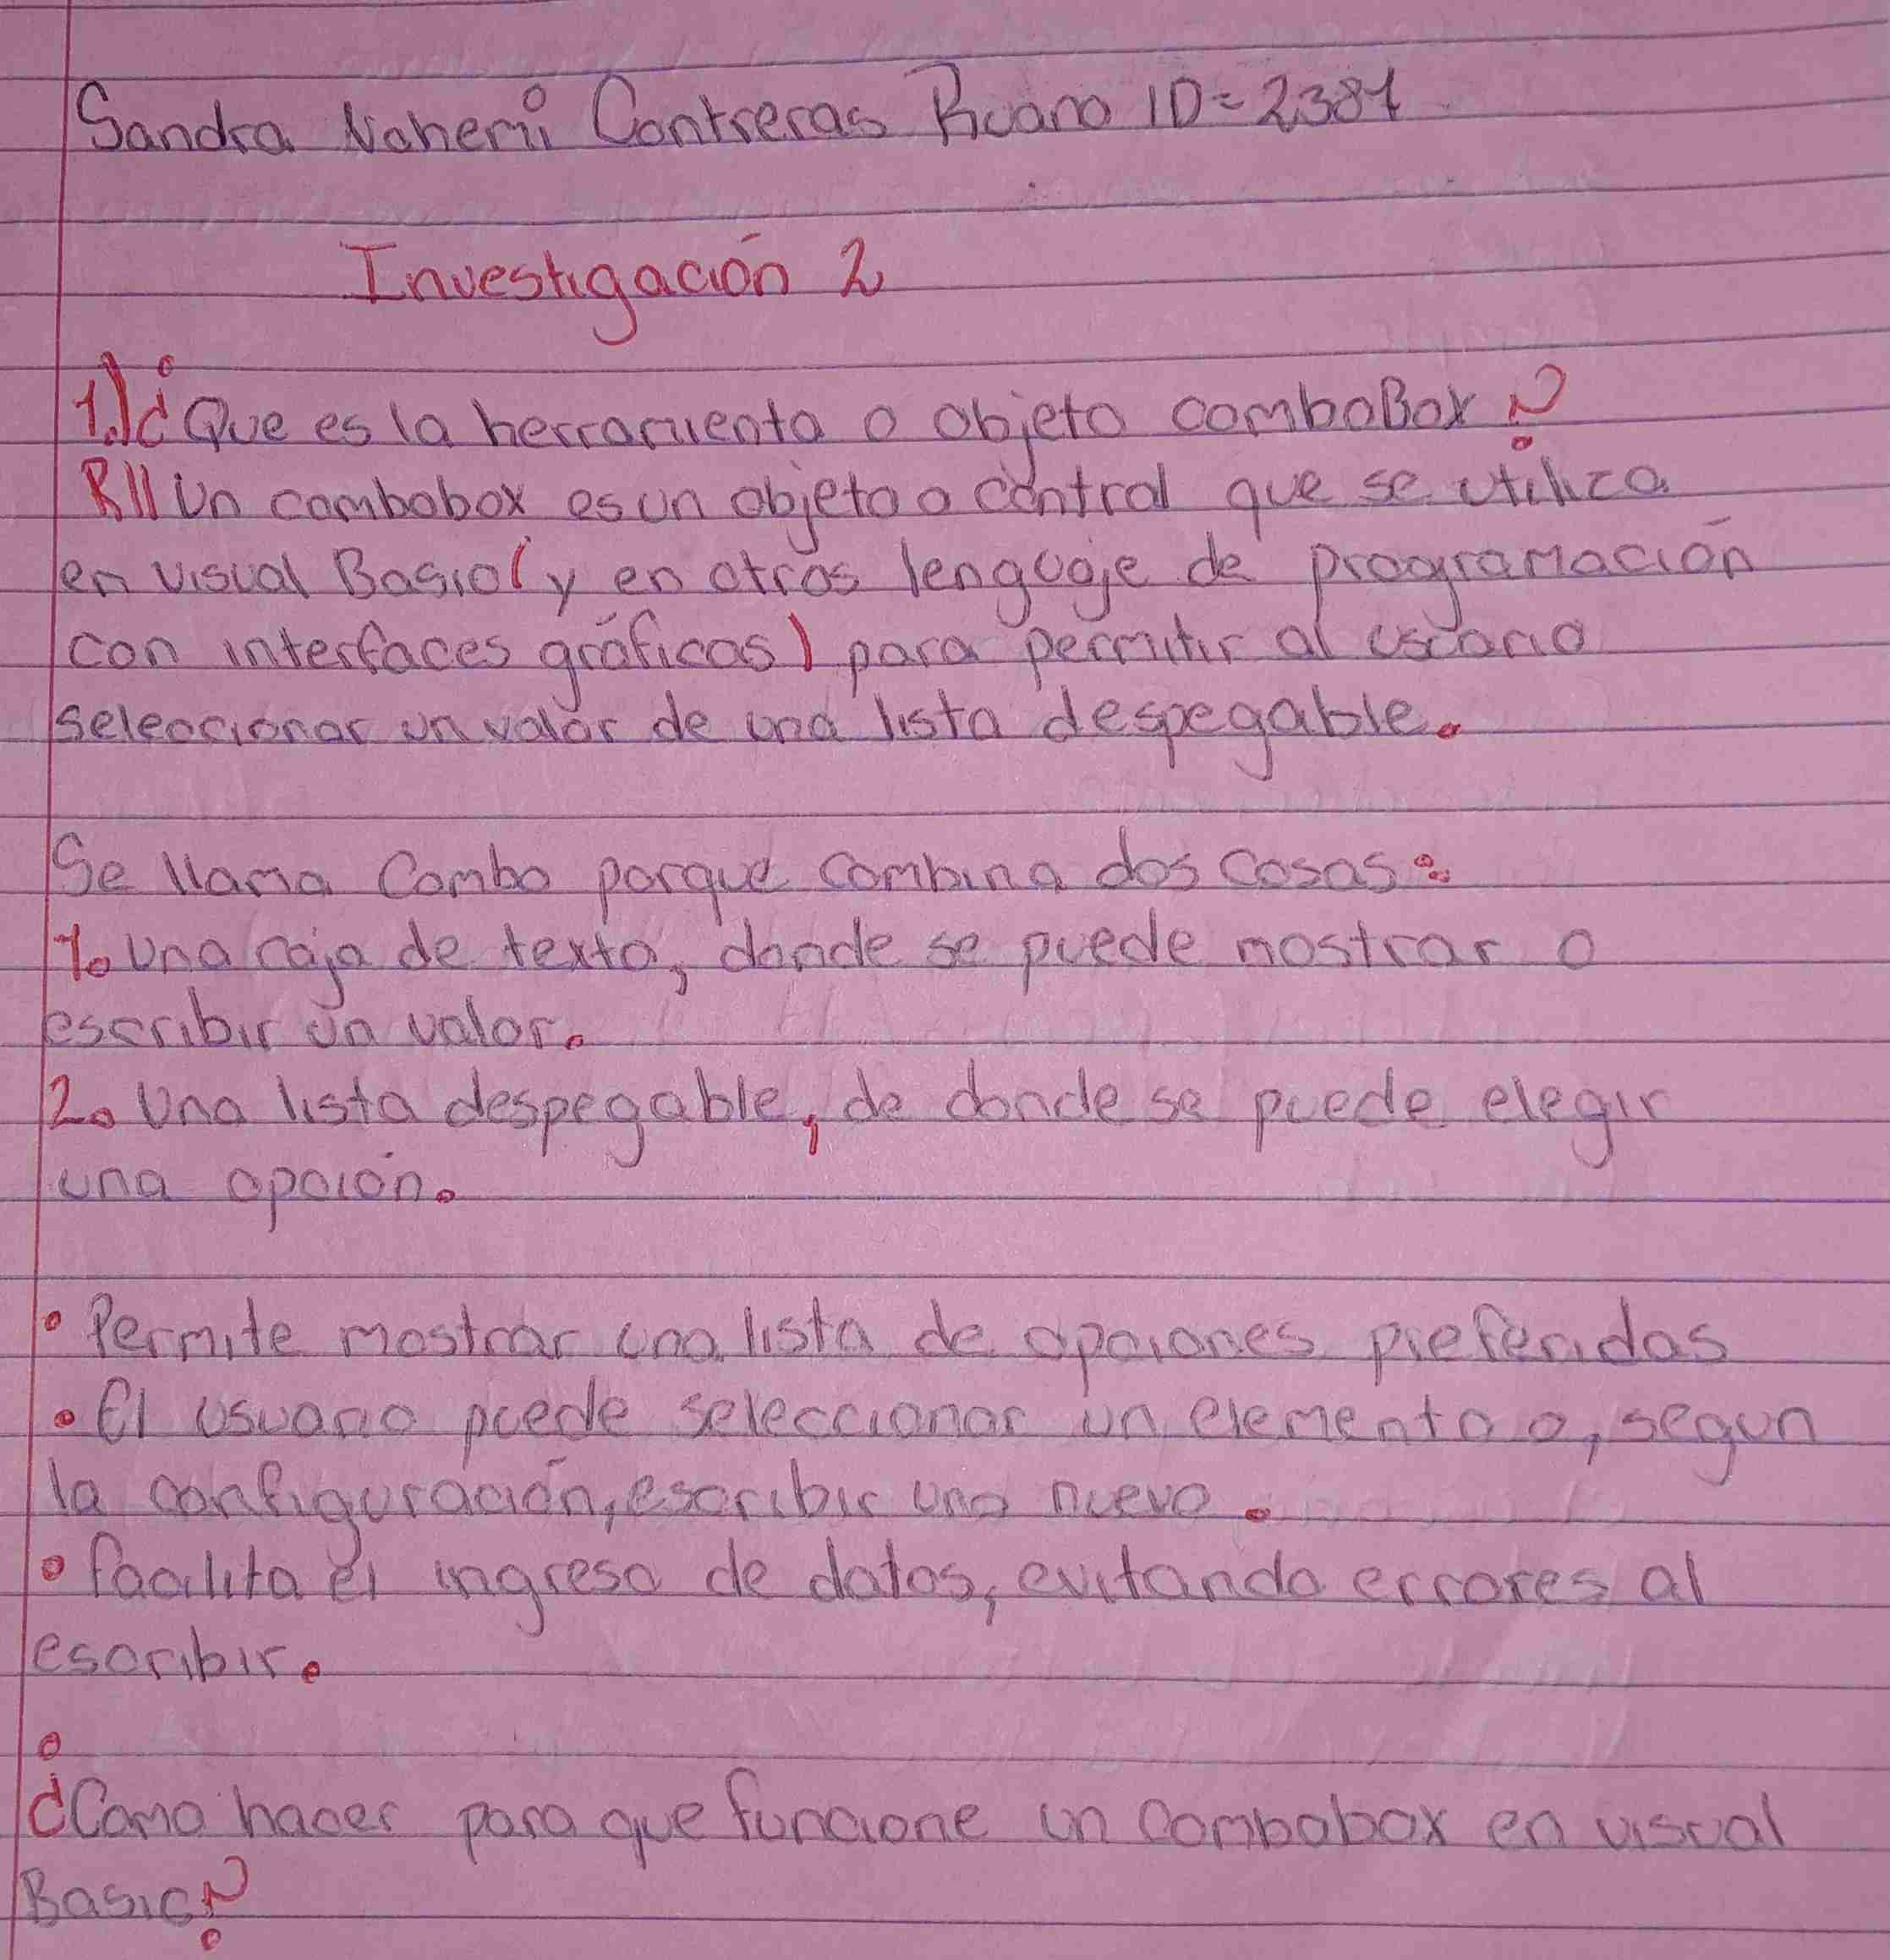 Sandra Nohemi Contreras Ruano ID=2381
Investigación 2
1.)¿Que es la herramienta o objeto comboBox?
R// Un combobox es un objeto o control que se utiliza
en visual Basic(y en otros lenguaje de programación
con interfaces gráficas) para permitir al usuario
seleccionar un valor de una lista despegable.
Se llama Combo porque combina dos cosas:
1. Una caja de texto, donde se puede mostrar o
escribir un valor.
2. Una lista despegable, de donde se puede elegir
una opción.
• Permite mostrar una lista de opciones preferidas
• El usuario puede seleccionar un elemento o, segun
la configuración, escribir uno nuevo.
• facilita el ingreso de datos, evitando errores al
escribir.
¿Como hacer para que funcione un combobox en visual
Basic?